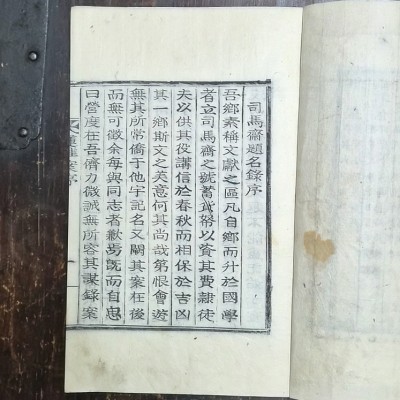 司馬齋題名錄序
吾鄉素稱文獻之區凡自鄉而升於國學
者立司馬齋之號蓄貨幣以資其費隸徒
夫以供其役講信於春秋而相保於吉凶
其一鄉斯文之英意何其尚哉第恨會遊
無其所常僑于他宇記名又闕其案在後
而無可徵余每與同志者歎惋旣而自忠
曰營度在吾儕力微誠無所容其謀錄案
案序